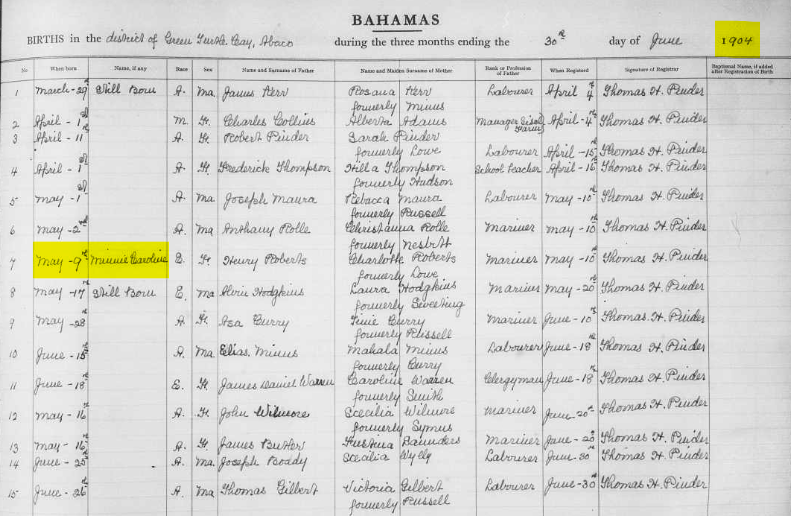 BAHAMAS
BIRTHS in the district of Green Turtle Cay, Abaco during the three months ending the 30th day of June 1904
No When born Name, if any Race Sex Name and Surname of Father Name and Maiden Surname of Mother Rank or Profession of Father When Registered Signature of Registrar Baptismal Name, if added after Registration of Birth
1 March-29th Still Born A. Ma. James Kerr Rosana Kerr Labourer April 4th Thomas H. Pinder
formerly Minus
2 April-1st M. F. Charles Collins Alberta Adams Manager Sisal April-4th Thomas H. Pinder
3 April-11th A. F. Robert Pinder Sarah Pinder
formerly Lowe Labourer April-15th Thomas H. Pinder
4 April-1st A. F. Frederick Thompson Hilla Thompson School Teacher April-16th Thomas H. Pinder
formerly Hudson
5 May-1st A. Ma Joseph Maura Rebacca Maura Labourer May-10th Thomas H. Pinder
formerly Russell
6 May-2nd A. Ma Anthany Rolle Christanna Rolle Mariner May-10th Thomas H. Pinder
formerly Nesbitt
7 May-9th Minnie Caroline E. F. Henry Roberts Charlotte Roberts Mariner May-10th Thomas H. Pinder
formerly Lowe
8 May-17th Still Born E. Ma Alvin Hodgkins Laura Hodgkins Mariner May-20th Thomas H. Pinder
formerly Sweeting
9 May-28th A. F. Asa Curry Curry Mariner June-10th Thomas H. Pinder
formerly Russell
10 June-15th A. Ma Elias Minus Mahala Minus Labourer June-18th Thomas H. Pinder
formerly Curry
11 June-18th E. F. James Daniel Warren Caroline Warren Clergyman June-18th Thomas H. Pinder
formerly Smith
12 May-16th A. F. John Wilmore Cecilia Wilmore Mariner June-20th Thomas H. Pinder
formerly Symus
13 May-16th A. F. James Butler Saunders Mariner June-20th Thomas H. Pinder
14 June-25th A. Ma. Joseph Boddy Cecilia Wylly Labourer June-30th Thomas H. Pinder
15 June-26th A. Ma Thomas Gilbert Victoria Gilbert Labourer June-30th Thomas H. Pinder
formerly Russell